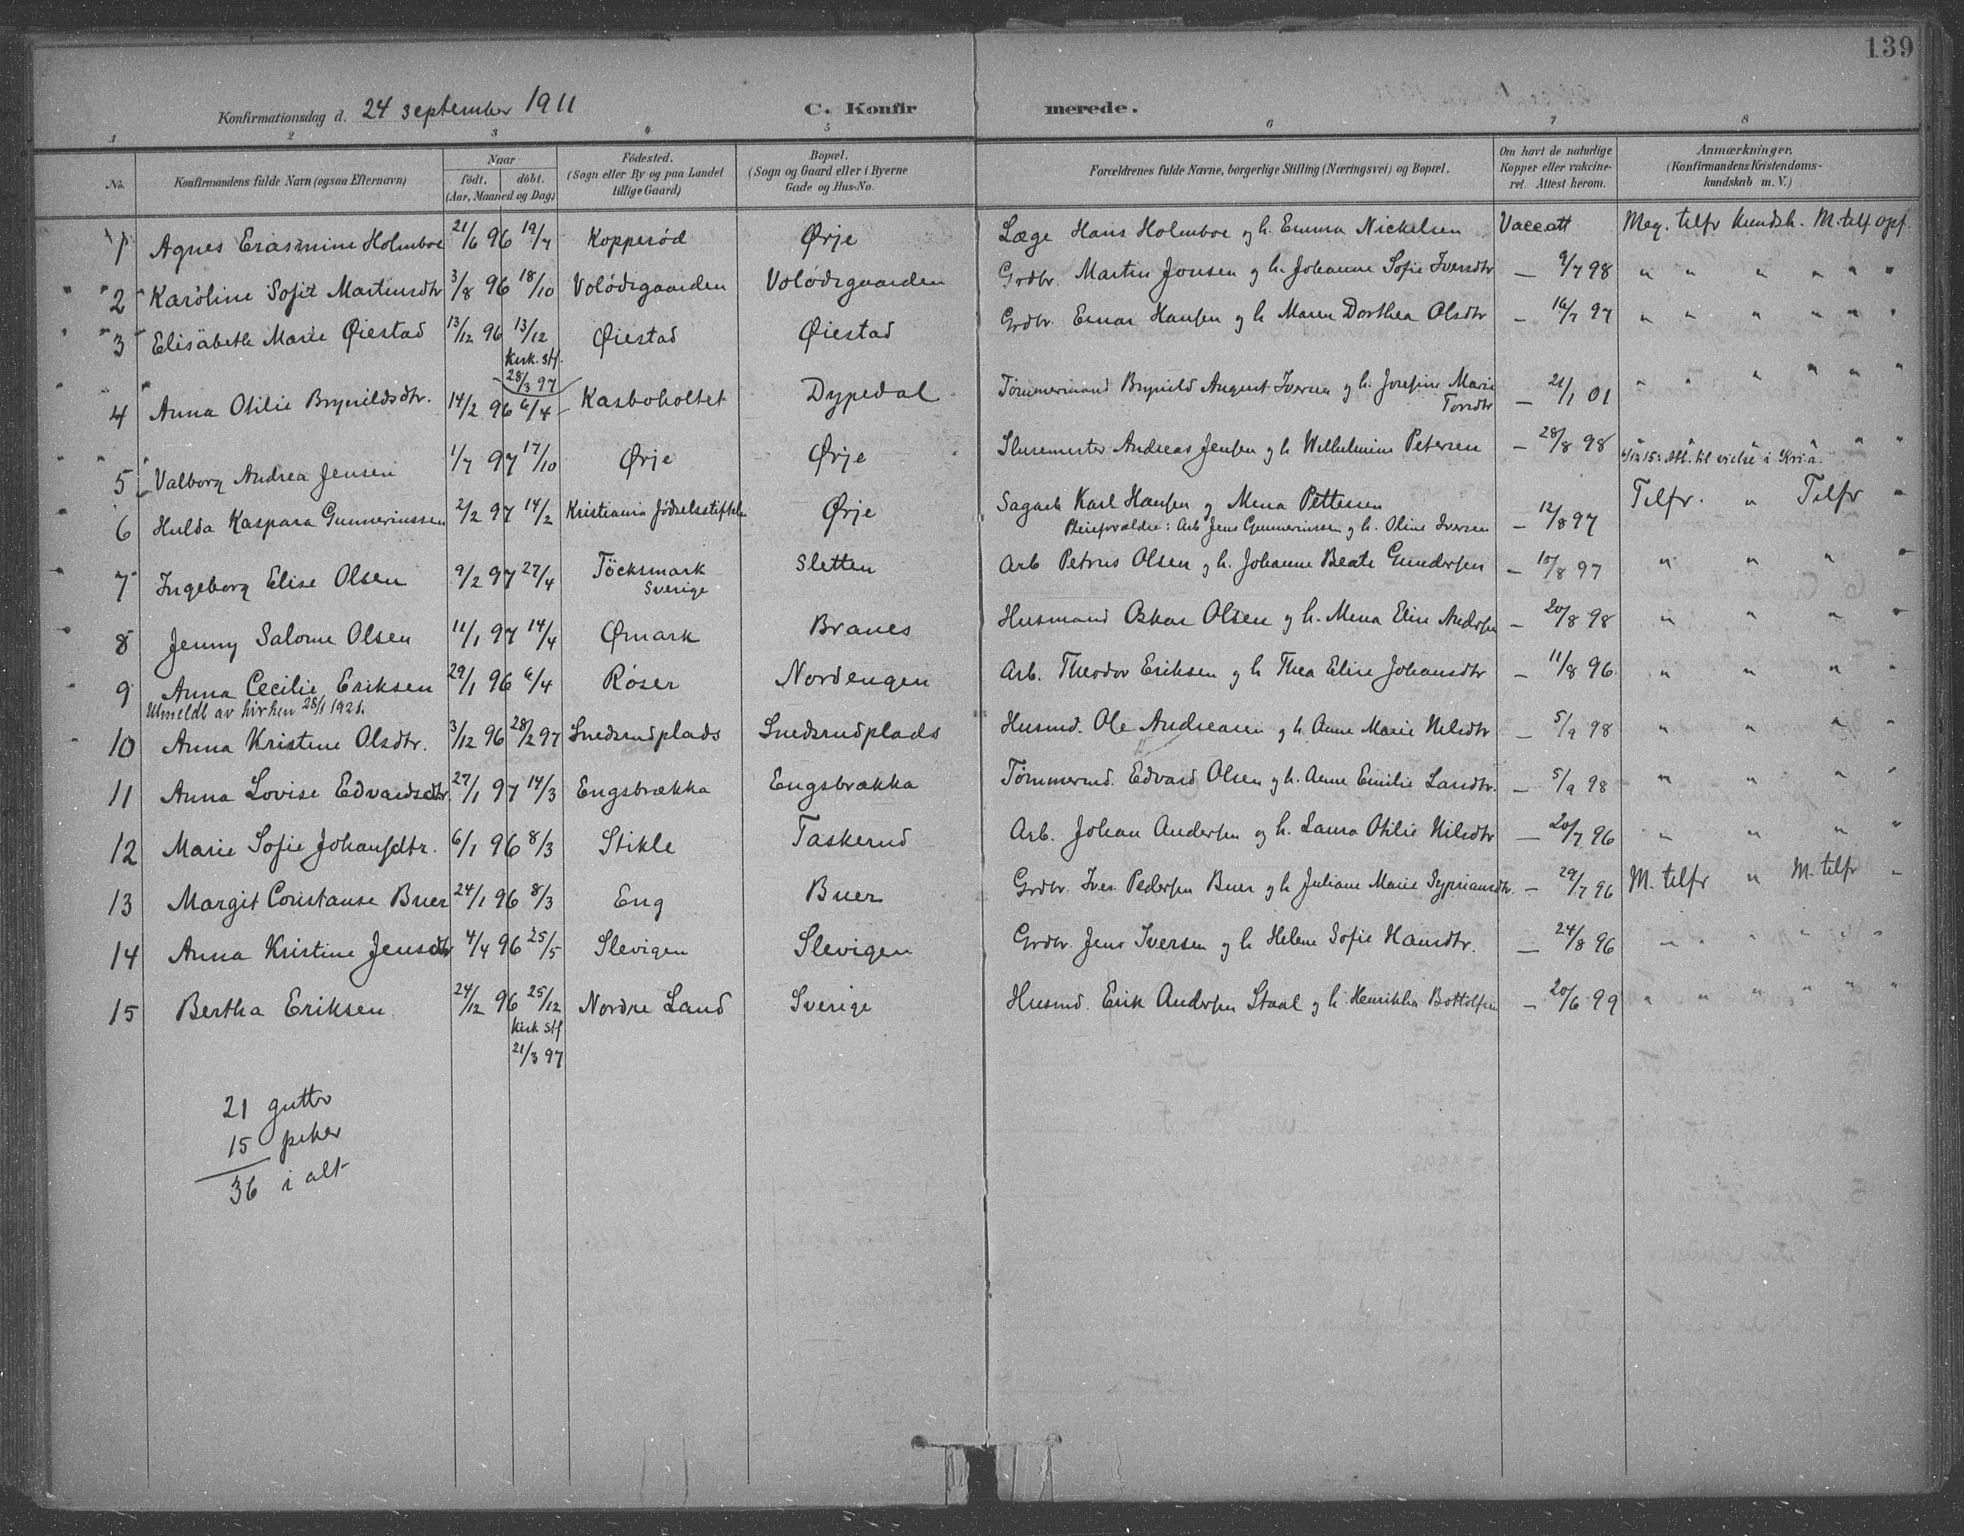 139
Konfirmationsdag d. 24 september 1911 C. Konfirmerede.
1 2 3 4 5 6 7 8
No. Konfirmandens fulde Navn (ogsaa Efternavn) Naar født. døbt. (Aar, Maaned og Dag) Fødested. (Sogn eller By og paa Landet tillige Gaard) Bopæl. (Sogn og Gaard eller i Byerne Gade og Hus-No. Forældrenes fulde Navne, borgerlige Stilling (Næringsvei) og Bopæl. Om havt de naturlige Kopper eller vakcineret. Attest herom. Anmærkninger. (Konfirmandens Kristendomskundskab m. V.)
1 Agnes Erasmine Holmboe 21/6 96 19/7 Kopperød Ørje Læge Hans Holmboe og h. Emma Nickelsen Vacc att Meg. tilfr kundsk. M. tilf opf.
2 Karoline Sofie Martinsdtr 3/8 96 18/10 Volødsgaarden Volødsgaarden Grdbr. Martin Jonsen og h. Johanne Sofie Iversdtr — 9/7 98 " " " " " "
3 Elisabeth Marie Øiestad 13/12 96 13/12 Kirk. stf. 28/3 97 Øiestad Øiestad Grdbr. Einar Hansen og h. Maren Dorthea Olsdtr — 16/7 97 " " " " " "
4 Anna Otilie Brynildsdtr. 14/2 96 6/4 Kasboholtet Dypedal Tømmermand Brynild August Iversen og h. Josefine Marie Torsdtr — 21/1 01 " " " " " "
5 Valborg Andrea Jensen 1/7 97 17/10 Ørje Ørje Slusemester Andreas Jensen og h. Wilhelmine Petersen — 28/8 98 " " " " " "
Att. til vielse i Kria.
6 Hulda Kaspara Gunneriussen 2/2 97 14/2 Kristiania Fødselsstiftelse Ørje Sagarb Karl Hansen og Mina Pettersen — 12/8 97 Tilfr. " Tilfr "
Pleieforældre: Arb Jens Gunneriussen og h. Oline Iversen
7 Ingeborg Elise Olsen 9/2 97 27/4 Töcksmark Sverige Sletten Arb Petrus Olsen og h. Johanne Beate Gundersen — 10/8 97 " " " "
8 Jenny Salome Olsen 11/1 97 14/4 Ømark Branes Husmand Oskar Olsen og h. Mina Elise Andersen — 20/8 98 " " " "
9 Anna Cecilie Eriksen 29/1 96 6/4 Røser Nordengen Arb. Theodor Eriksen og h Thea Elise Johansdtr — 11/8 96 " " " "
Utmeldt av kirken 28/1 1921.
10 Anna Kristine Olsdtr. 3/12 96 28/2 97 Snedsrudplads Snedsrudplads Husmd. Ole Andreasen og h. Anne Marie Nilsdtr — 5/9 98 " " " "
11 Anna Lovise Edvardsdtr. 27/1 97 14/3 Engsbrækka Engsbrækka Tømmermd. Edvard Olsen og h. Anne Emilie Larsdtr. — 5/9 98 " " " "
12 Marie Sofie Johansdtr. 6/1 96 8/3 Stikle Taskerud Arb. Johan Andersen og h. Laura Otilie Nilsdtr — 20/7 96 " " " "
13 Margit Constanse Buer 24/1 96 8/3 Eng Buer Grdbr. Iver Pedersen Buer og h Juliane Marie Sypriansdtr. — 29/7 96 M. tilfr " M. tilfr "
14 Anna Kristine Jensdtr 4/4 96 25/5 Slevigen Slevigen Grdbr. Jens Iversen og h Helene Sofie Hansdtr. — 24/8 96 " " " " " "
15 Bertha Eriksen 24/12 96 25/12 Kirk Stf 21/3 97 Nordre Land Sverige Husmd. Erik Andersen Staal og h Henrikke Bottolfsen — 20/6 99 " " " " " "
21 gutter
15 piker
36 i alt